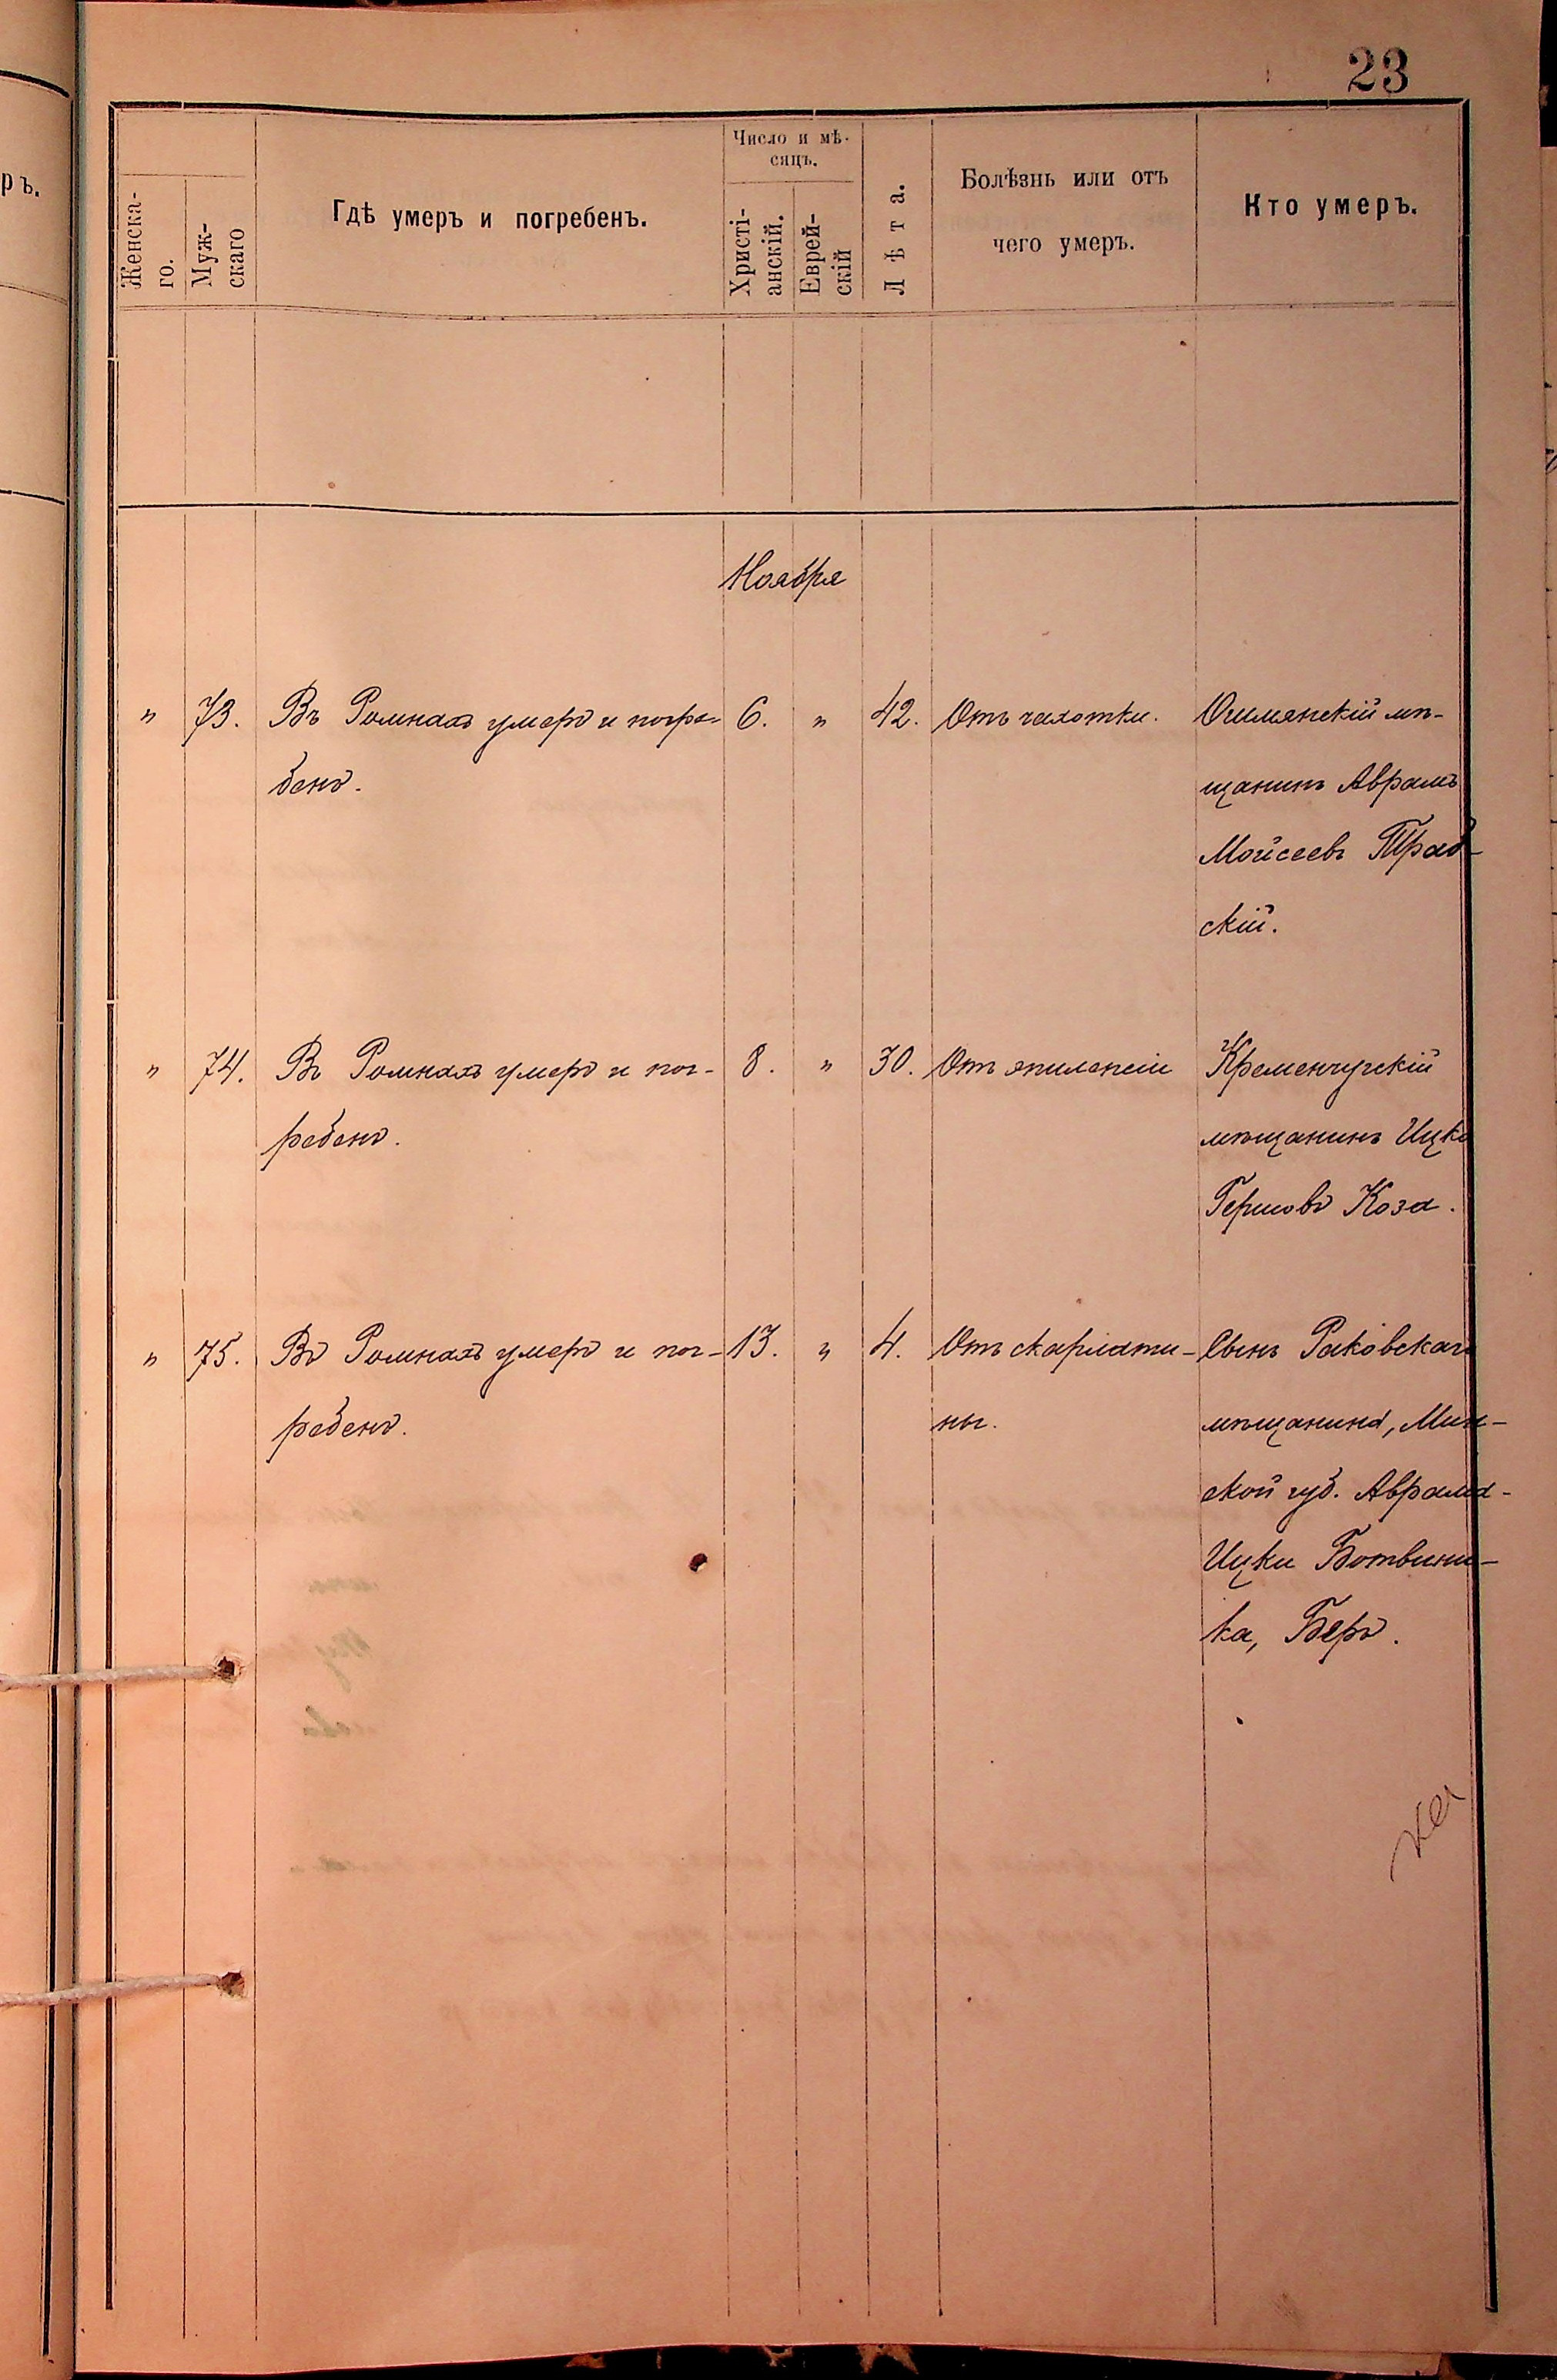 23
ръ.
Женска-
го.
Муж-
скаго
Гдѣ умеръ и погребенъ.
Число и мѣ-
сяцъ.
Христі-
анскій.
Еврей-
скій
Лѣта.
Болѣзнь или отъ
чего умеръ.
Кто умеръ.
Ноября
" 73. Въ Ромнахъ умеръ и погре- 6. " 42. Отъ чахотки. Ошмянскій мѣ-
бенъ. щанинъ Аврамъ
Мойсеевъ Траб-
скій.
" 74. Въ Ромнахъ умеръ и пог- 8. " 30. Отъ эпилепсіи Кременчугскій
ребенъ. мѣщанинъ Ицко
Гершовъ Коза.
" 75. Въ Ромнахъ умеръ и пог- 13. " 4. Отъ скарлати- Сынъ Раковскаго
ребенъ. ны. мѣщанина, Мин-
ской губ. Аврама-
Ицки Ботвини-
ка, Беръ.